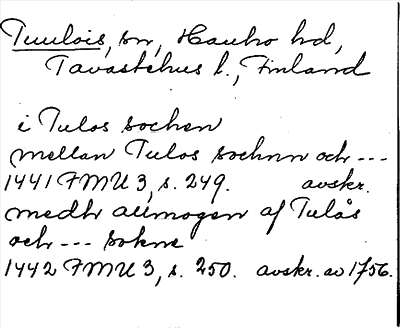 Tuulois, sn, Hauho hd,
Tavastehus l., Finland
i Tulos sochen
mellan Tulos sochnn och ---
1441 FMU 3, s. 249. avskr.
medh allmogen af Tulås
och --- sokne
1442 FMU 3, s. 250. avskr. av 1756.